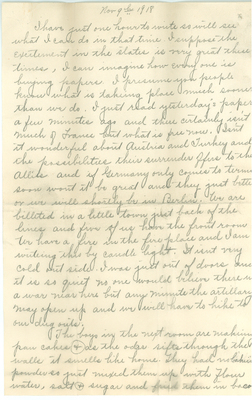 Nov 9 1918
I have just one hour to write so will see
what I can do in that time. I suppose the
excitement in the states is very great these
times, I can imagine how every one is
buying papers. I presume you people
know what is taking place much sooner
than we do. I just read yesterday's paper
a few minutes ago and there certainly isn't
much of France but what is free now. Isn't
it wonderful about Austria and Turkey and
the possibilities their surrender gives to the
Allies and if Germany only comes to terms
soon won't it be grand and they just better
or we will shortly be in Berlin. We are
billeted in a little town just back of the
lines and five of us have the front room
We have a fire in the fire place and I am
writing this by candle light. It isn't very
cold out side. I was just out of doors and
it is so quiet no one would believe there is
a war near here but any minute the artillery
may open up and we will have to hike to
our dug outs.
The boys in the next room are making
pan cakes as the odor sifts through the
walls it smells like home. They had no baking
powder so just mixed them up with flour
water, salt & sugar and fried them in bacon